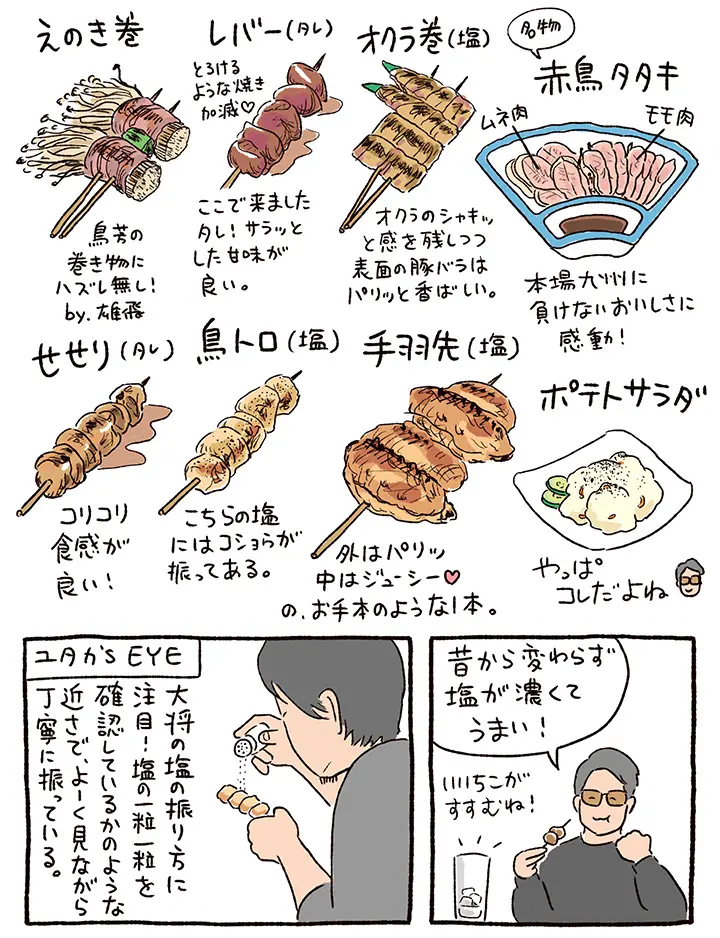 えのき巻
鳥芳の
巻き物に
ハズレ無し!
by.雄飛
レバー(タレ)
とろける
ような焼き
加減♡
ここで来ました
タレ!サラッと
した甘味が
良い。
オクラ巻(塩)
オクラのシャキッ
と感を残しつつ
表面の豚バラは
パリッと香ばしい。
名物
赤鳥タタキ
ムネ肉
モモ肉
本場九州に
負けないおいしさに
感動!
せせり(タレ)
コリコリ
食感が
良い!
鳥トロ(塩)
こちらの塩
にはコショウが
振ってある。
手羽先(塩)
外はパリッ
中はジューシー♥
の、お手本のような1本。
ポテトサラダ
やっぱ
コレだよね
ユタカ's EYE
大将の塩の振り方に
注目!塩の一粒一粒を
確認しているかのような
近さで、よーく見ながら
丁寧に振っている。
昔から変わらず
塩が濃くて
うまい!
いいちこが
すすむね!